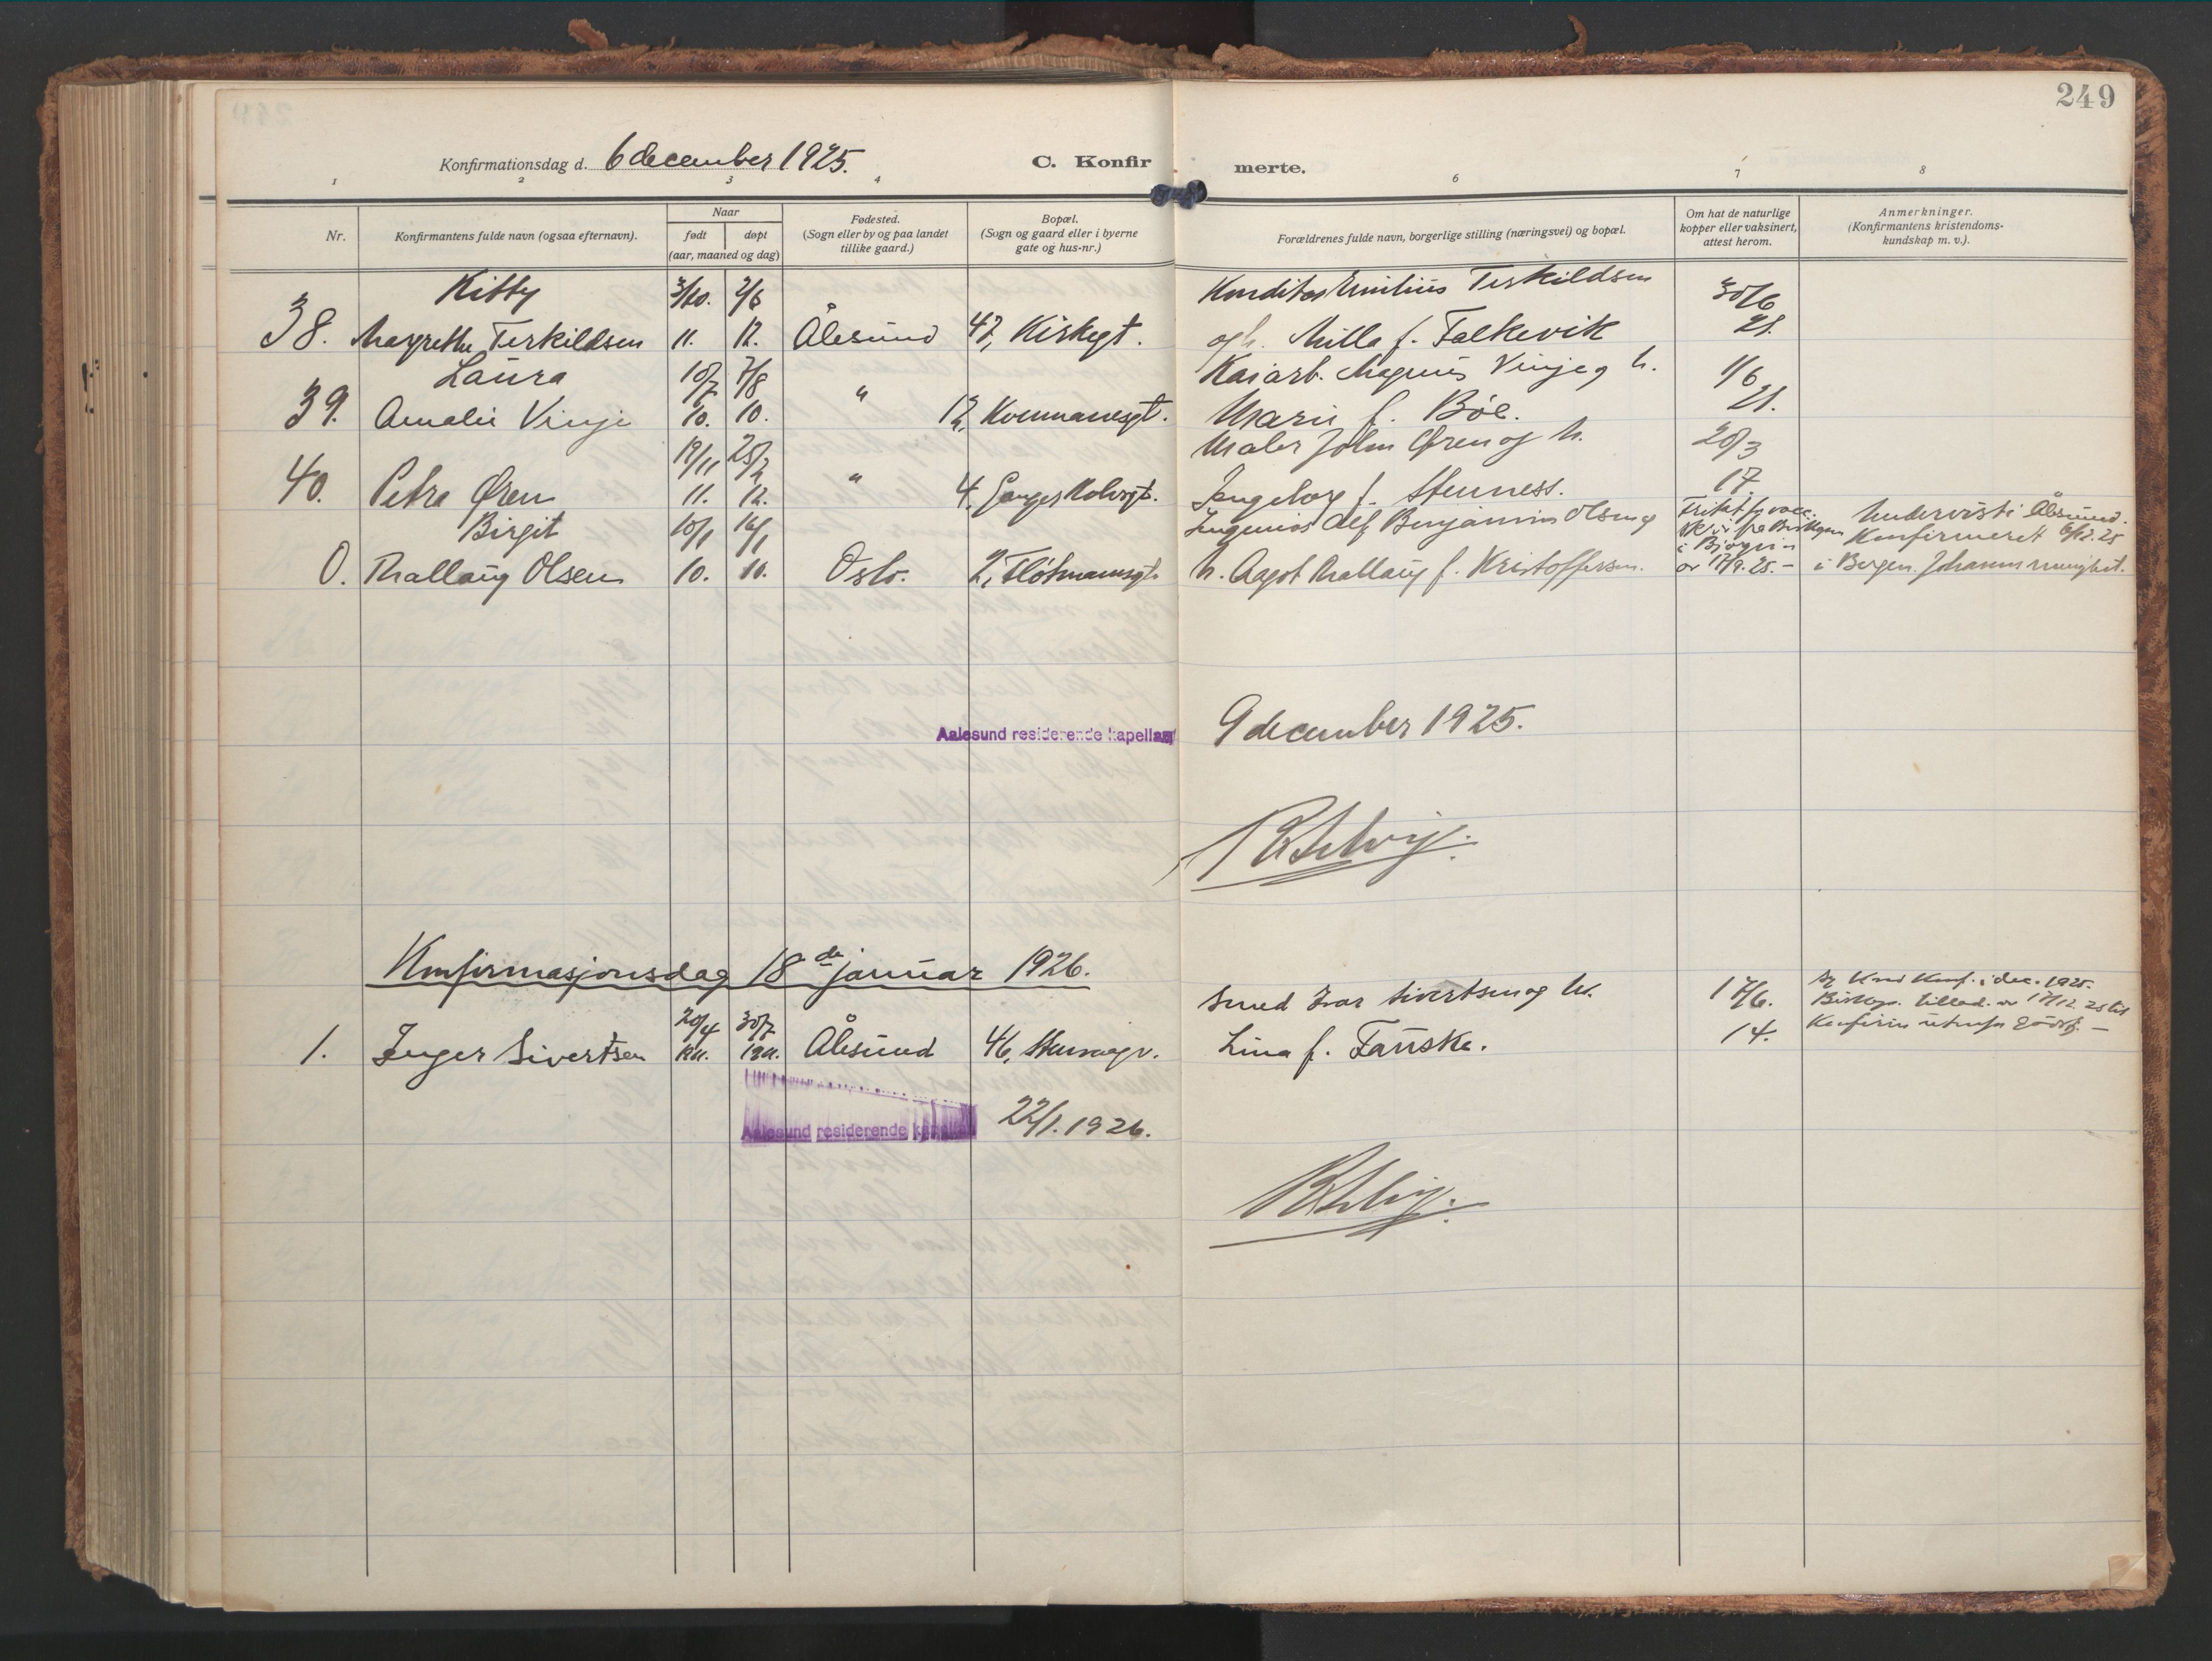 249
Konfirmationsdag d. 6 december 1925.
C. Konfir merte.
1 2 3 4 6 7 8
Nr.
Konfirmantens fulde navn (ogsaa efternavn).
Naar
født døpt
(aar, maaned og dag)
Fødested.
(Sogn eller by og paa landet
tillike gaard.)
Bopæl.
(Sogn og gaard eller i byerne
gate og hus-nr.)
Forældrenes fulde navn, borgerlige stilling (næringsvei) og bopæl.
Om hat de naturlige
kopper eller vaksinert,
attest herom.
Anmerkninger.
(Konfirmantens kristendoms-
kundskap m. v.).
Kitty 3/10. 2/6 Konditor Emilius Terkildsen 30/6
38. Margrethe Terkildsen 11. 12. Ålesund 47, Kirkegt. og h. Milla f. Falkevik 21.
Laura 10/7 7/8 Kaiarb. Magnus Vinje og h. 1/6
39. Amalie Vinje 10. 10. " 12, Kommanesgt. Marie f. Böe. 21.
19/11 25/2 Maler John Øren og h. 20/3
40. Petra Øren 11. 12. " 4, Ganger Rolvsgt. Ingeborg f. Stenness. 17.
Birgit 10/1 16/1 Ingeniør Alf Benjamin Olsen og Fritat fr vacc. Undervist i Ålesund.
Konfirmeret 6/12.25
i Bjørgvin
0. Thallaug Olsen 10. 10. Oslo. 2, Flötmannsgt. h. Aagot Thallaug f. Kristoffersen. av 17/9.25.- i Bergen. Johannes menighet.
Aalesund residerende kapellani 9 december 1925.
Konfirmasjonsdag 18de januar 1926.
Smed Ivar Sivertsen og h. 17/6. Konf. i dec. 1925.
20/4 30/7
1. Inger Sivertsen 1911. 1911. Ålesund 46, Lina f. Fauske. 14.
Aalesund residerende kapellani 22/1.1926.